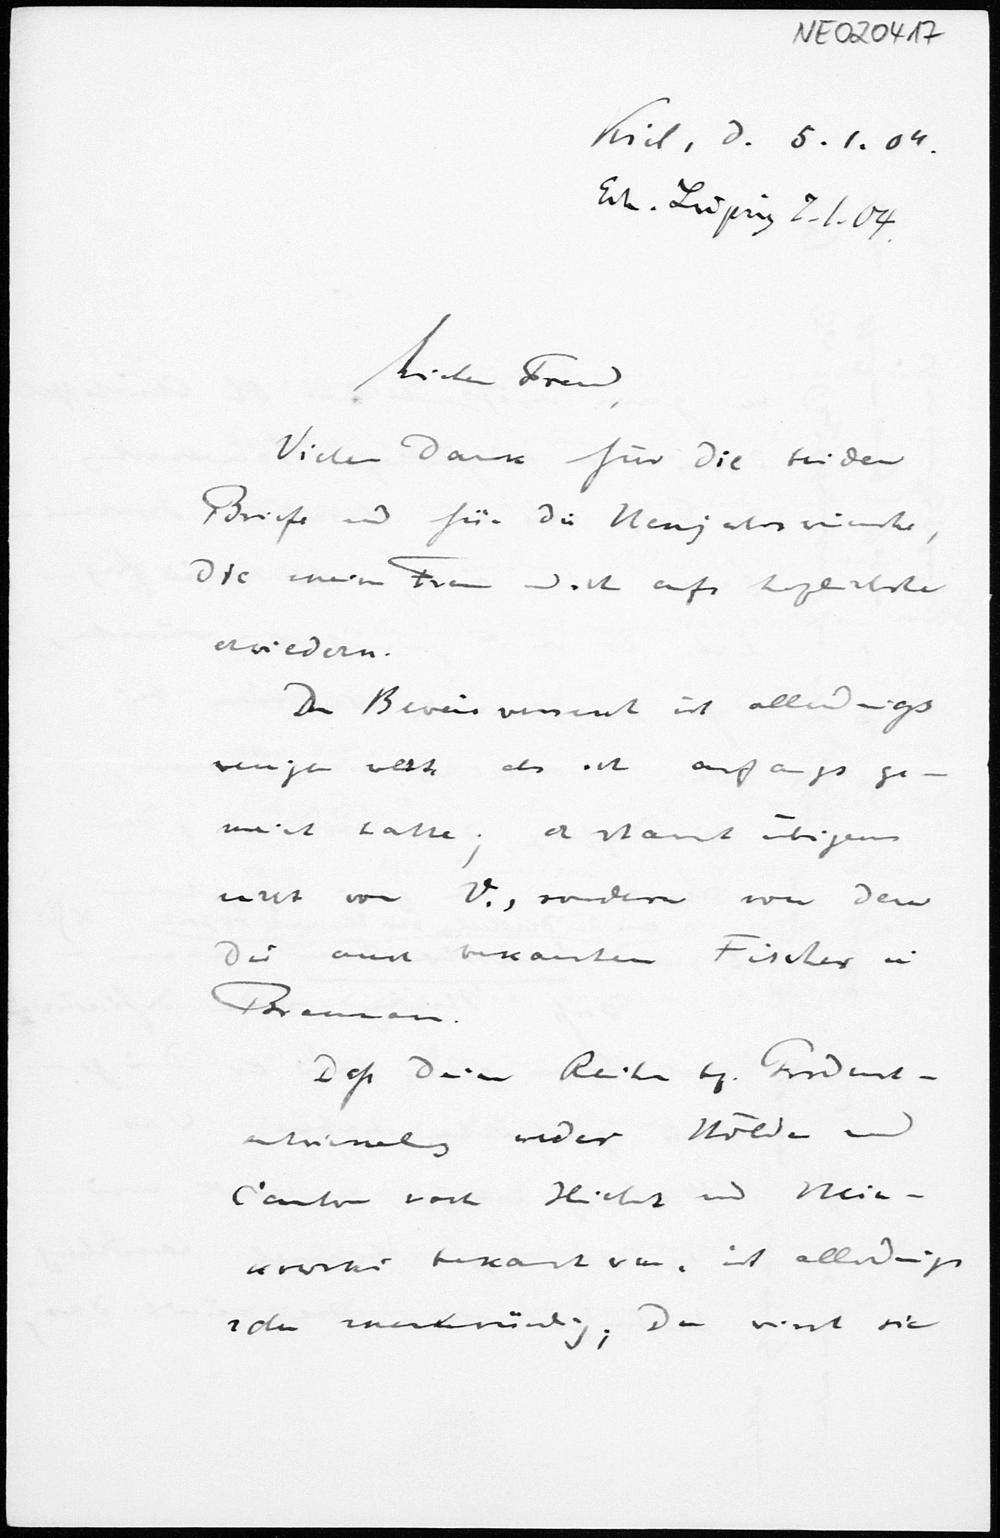 NE020417
Kiel, d. 5.1.04.
Erh. Leipzig 7.1.04.
Lieber Freund,
Vielen Dank für die beiden
Briefe und für die Neujahrswünsche,
die meine Frau und ich aufs herzlichste
erwiedern.
Der Beweisversuch ist allerdings
weniger werth als ich anfangs ge-
meint hatte; er stammt übrigens
nicht von V., sondern von dem
Dir auch bekannten Fischer in
Braunau.
Daß Deine Reihe bz.
weder Hölder und
Cantor noch Hilbert und Min-
kowski bekannt war, ist allerdings
sehr merkwürdig; Du wirst sie